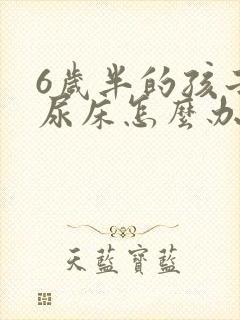 6歲半的孩子
尿床怎麼办
天藍寶藍